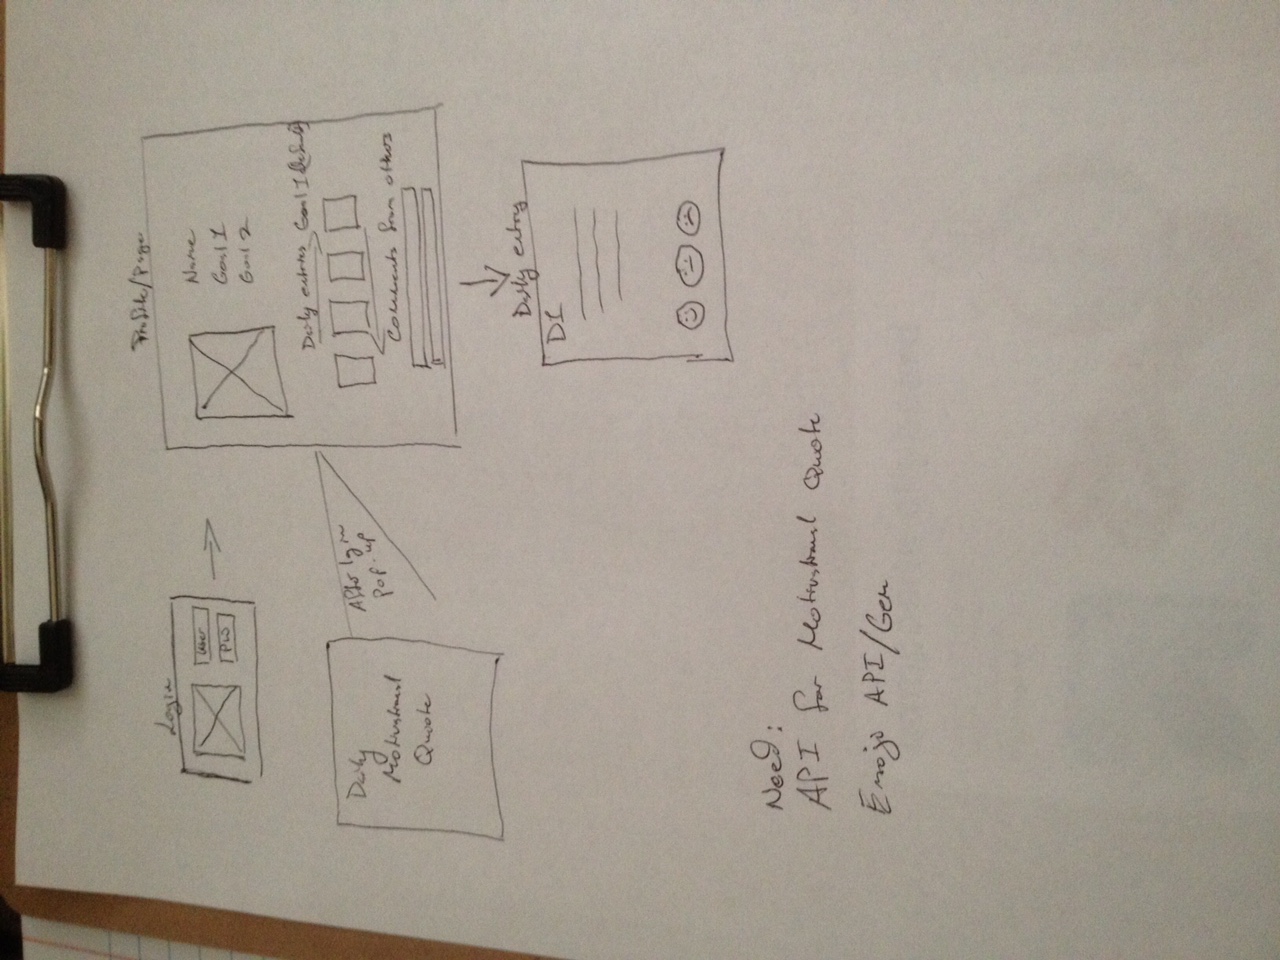 Login
User
PW
Profile/Page
Name
Goal 1
Goal 2
Daily entries Goal 1 (default)
Comments from others
After login
pop-up
Daily
Motivational
Quote
Daily entry
D1
Need:
API for Motivational Quote
Emoji API/Gem